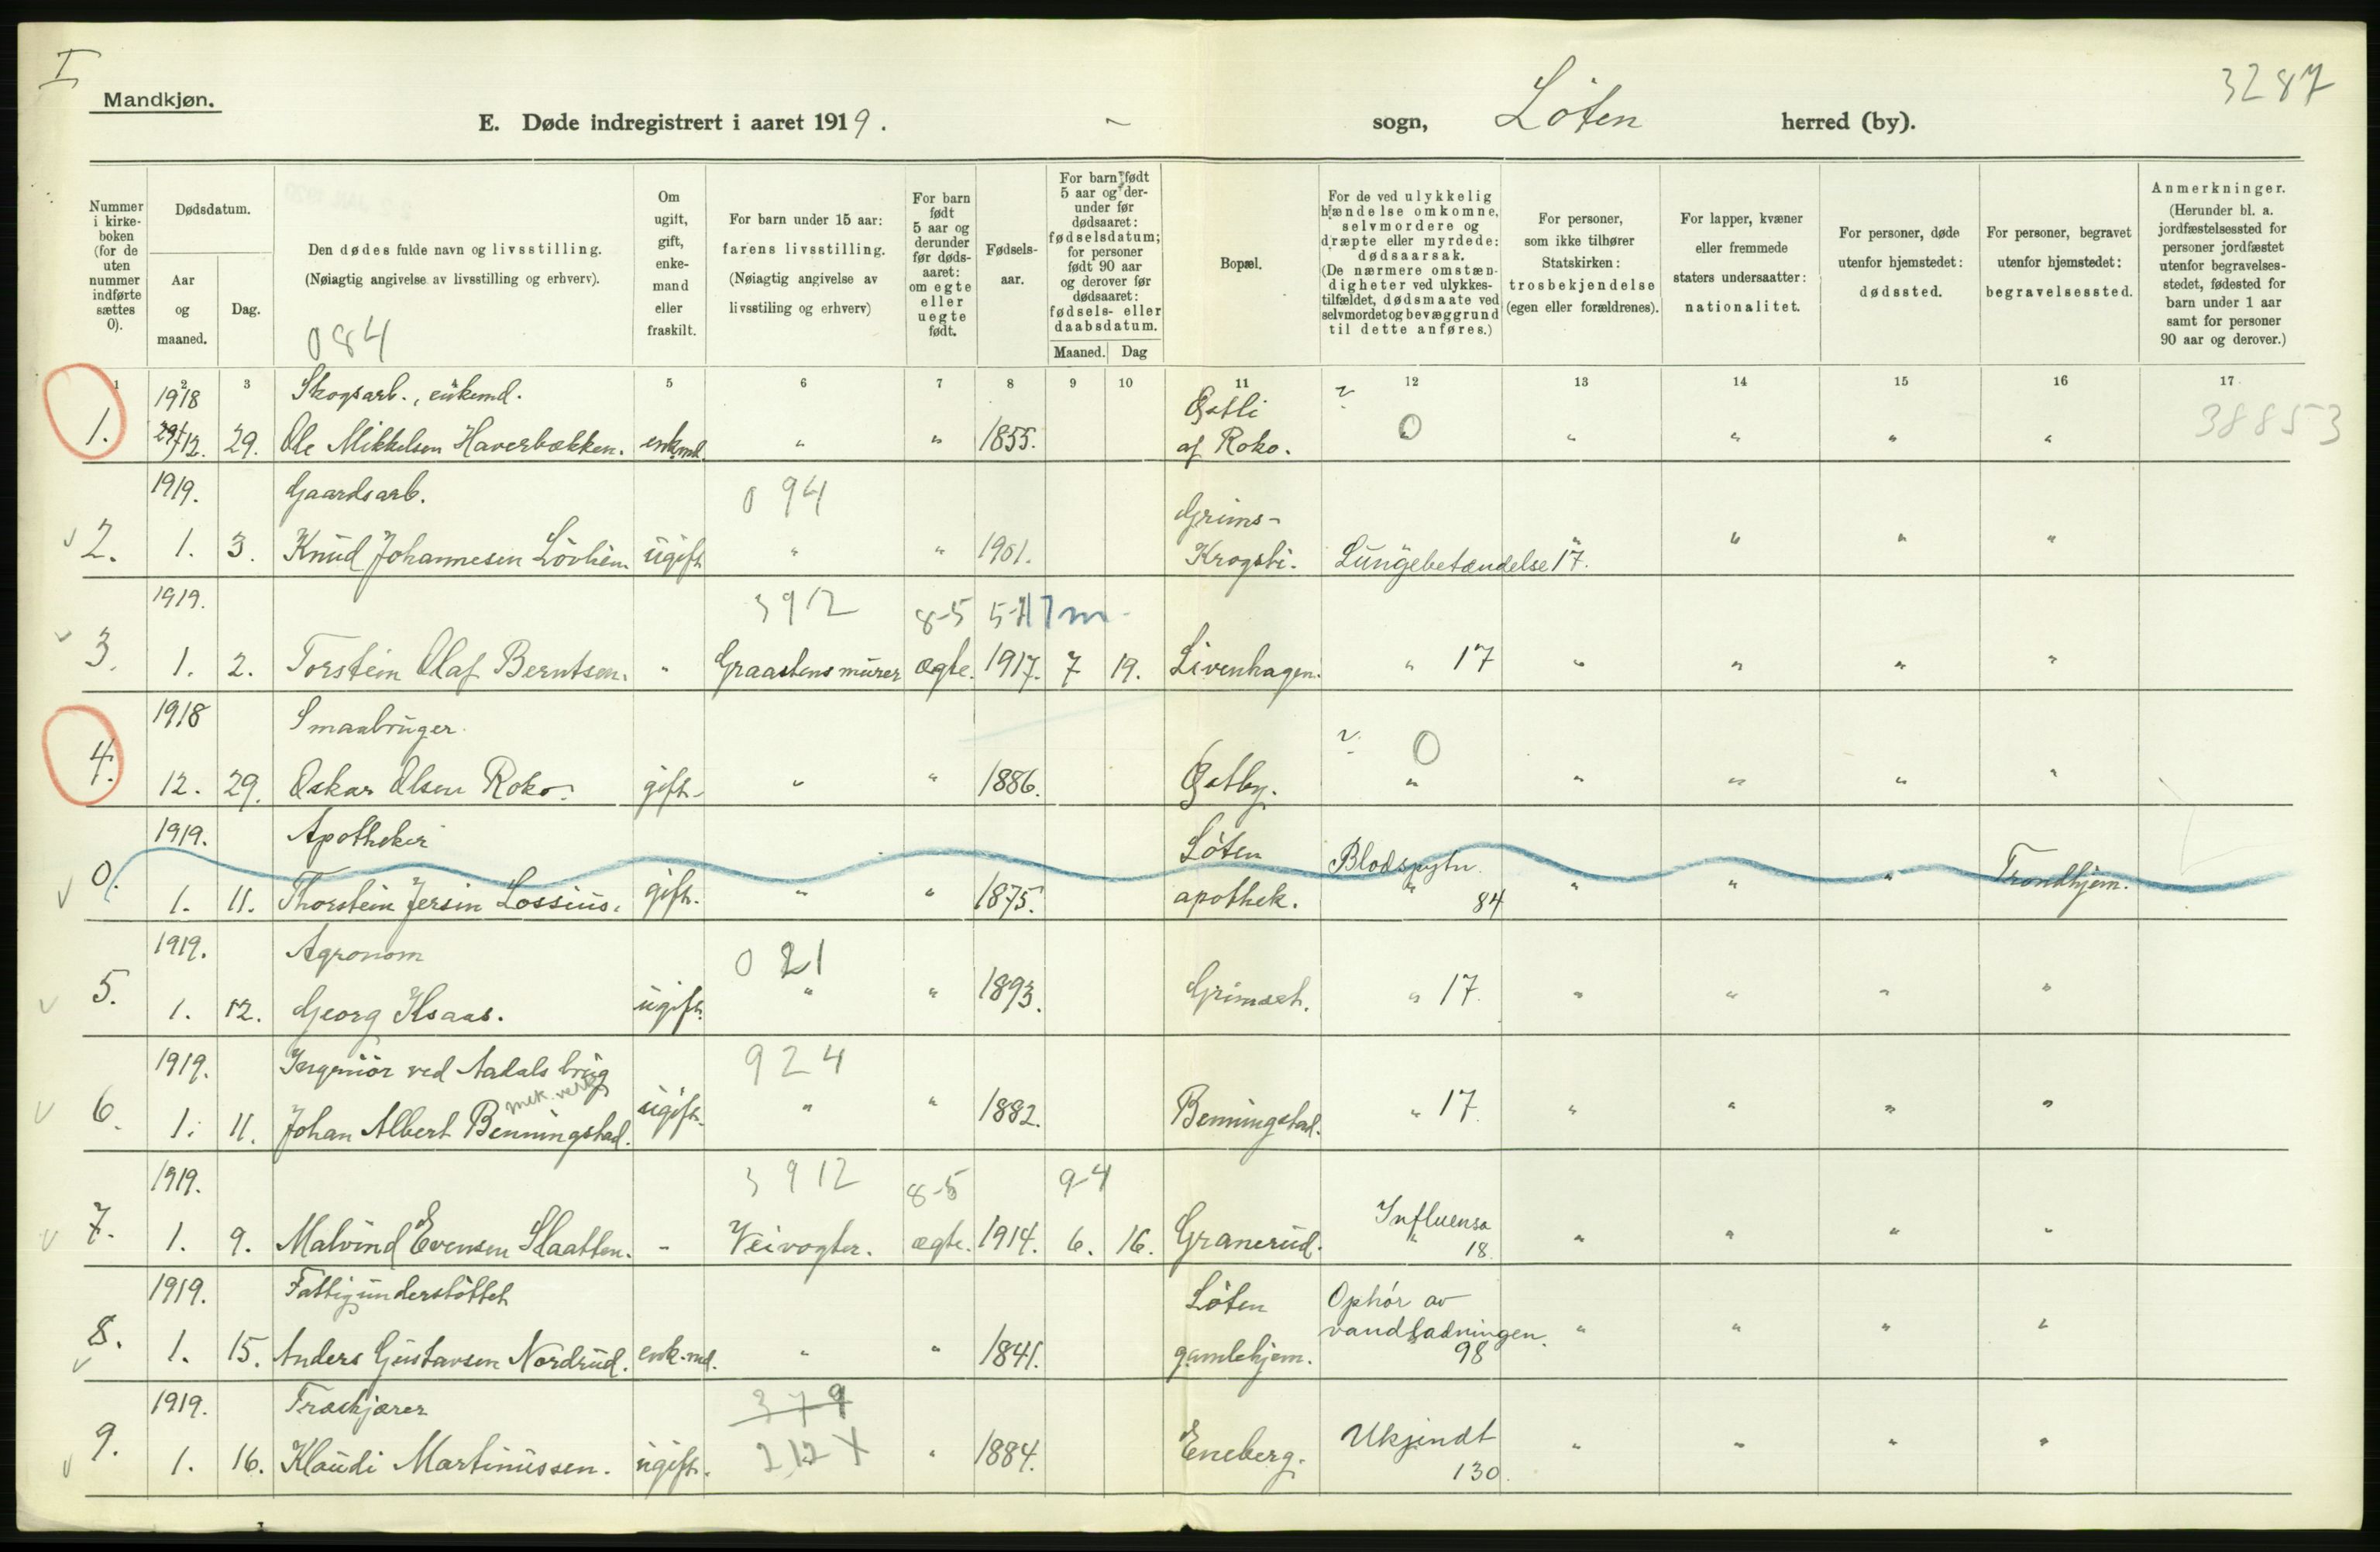 I
Mandkjøn.
3287
E. Døde indregistrert i aaret 1919. ~ sogn, Løten herred (by).
Nummer i kirkeboken (for de uten nummer indførte sættes 0).
Dødsdatum.
Aar og maaned.
Dag.
Den dødes fulde navn og livsstilling.
(Nøiagtig angivelse av livsstilling og erhverv).
084
Om ugift, gift, enkemand eller fraskilt.
For barn under 15 aar: farens livsstilling.
(Nøiagtig angivelse av livsstiling og erhverv)
For barn født 5 aar og derunder før dødsaaret: om egte eller uegte født.
Fødselsaar.
For barn født 5 aar og derunder før dødsaaret: fødselsdatum; for personer født 90 aar og derover før dødsaaret: fødsels- eller daabsdatum.
Maaned. Dag
Bopæl.
For de ved ulykkelig hændelse omkomne, selvmordere og dræpte eller myrdede: dødsaarsak.
(De nærmere omstændigheter ved ulykkestilfældet, dødsmaate ved selvmordet og bevæggrund til dette anføres.)
For personer, som ikke tilhører Statskirken: trosbekjendelse (egen eller forældrenes).
For lapper, kvæner eller fremmede staters undersaatter: nationalitet.
For personer, døde utenfor hjemstedet: dødssted.
For personer, begravet utenfor hjemstedet: begravelsessted.
Anmerkninger.
(Herunder bl. a. jordfæstelsessted for personer jordfæstet utenfor begravelsesstedet, fødested for barn under 1 aar samt for personer 90 aar og derover.)
1 2 3 5 6 7 8 9 10 11 12 13 14 15 16 17
1918 Skogsarb., enkemd. Østli
1. 12. 29. Ole Mikkelsen Haverbækken. enkmd. " " 1855. af Roko. 0 " " " " 38853
1919. Gaardsarb. 094 Grims-
2. 1. 3. Knud Johannesen Lövlien. ugift " " 1901. Krogsti. Lungebetændelse 17. " " " "
1919. 3912 8-5 5-17m
3. 1. 2. Torstein Olaf Berntsen. " Graastensmurer ægte. 1917. 7 19. Livenhagen. " 17 " " " "
1918 Smaabruger. 0
4. 12. 29. Oskar Olsen Roko. gift. " " 1886. Østby. " " " " "
1919. Apotheker Löten Blodspytn.
0. 1. 11. Thorstein Jersin Lossius. gift. " " 1875. apothek. " 84 " " " Trondhjem.
1919. Agronom 021
5. 1. 12. Georg Ilsaas. ugift. " " 1893. Grimset. " 17. " " " "
1919. Ingeniör ved Aadals brug 924
mek. verk
6. 1. 11. Johan Albert Benningstad. ugift. " " 1882. Benningstad. " 17. " " " "
1919. 3912 8-5 9-4 Influensa
7. 1. 9. Malvind Evensen Slaatten. - Veivogter. ægte. 1914. 6. 16. Granerud. " 18. " " " "
1919. Fattigunderstöttet Löten Ophör av
vandladningen.
8. 1. 15. Anders Gustavsen Nordrud. enk.md. " " 1841. gamlehjem. 98 " " " "
1919. Træskjærer 379 Ukjendt
9. 1. 16. Klaudi Martinussen. ugift. 212 X " 1884. Eneberg. 130. " " " "